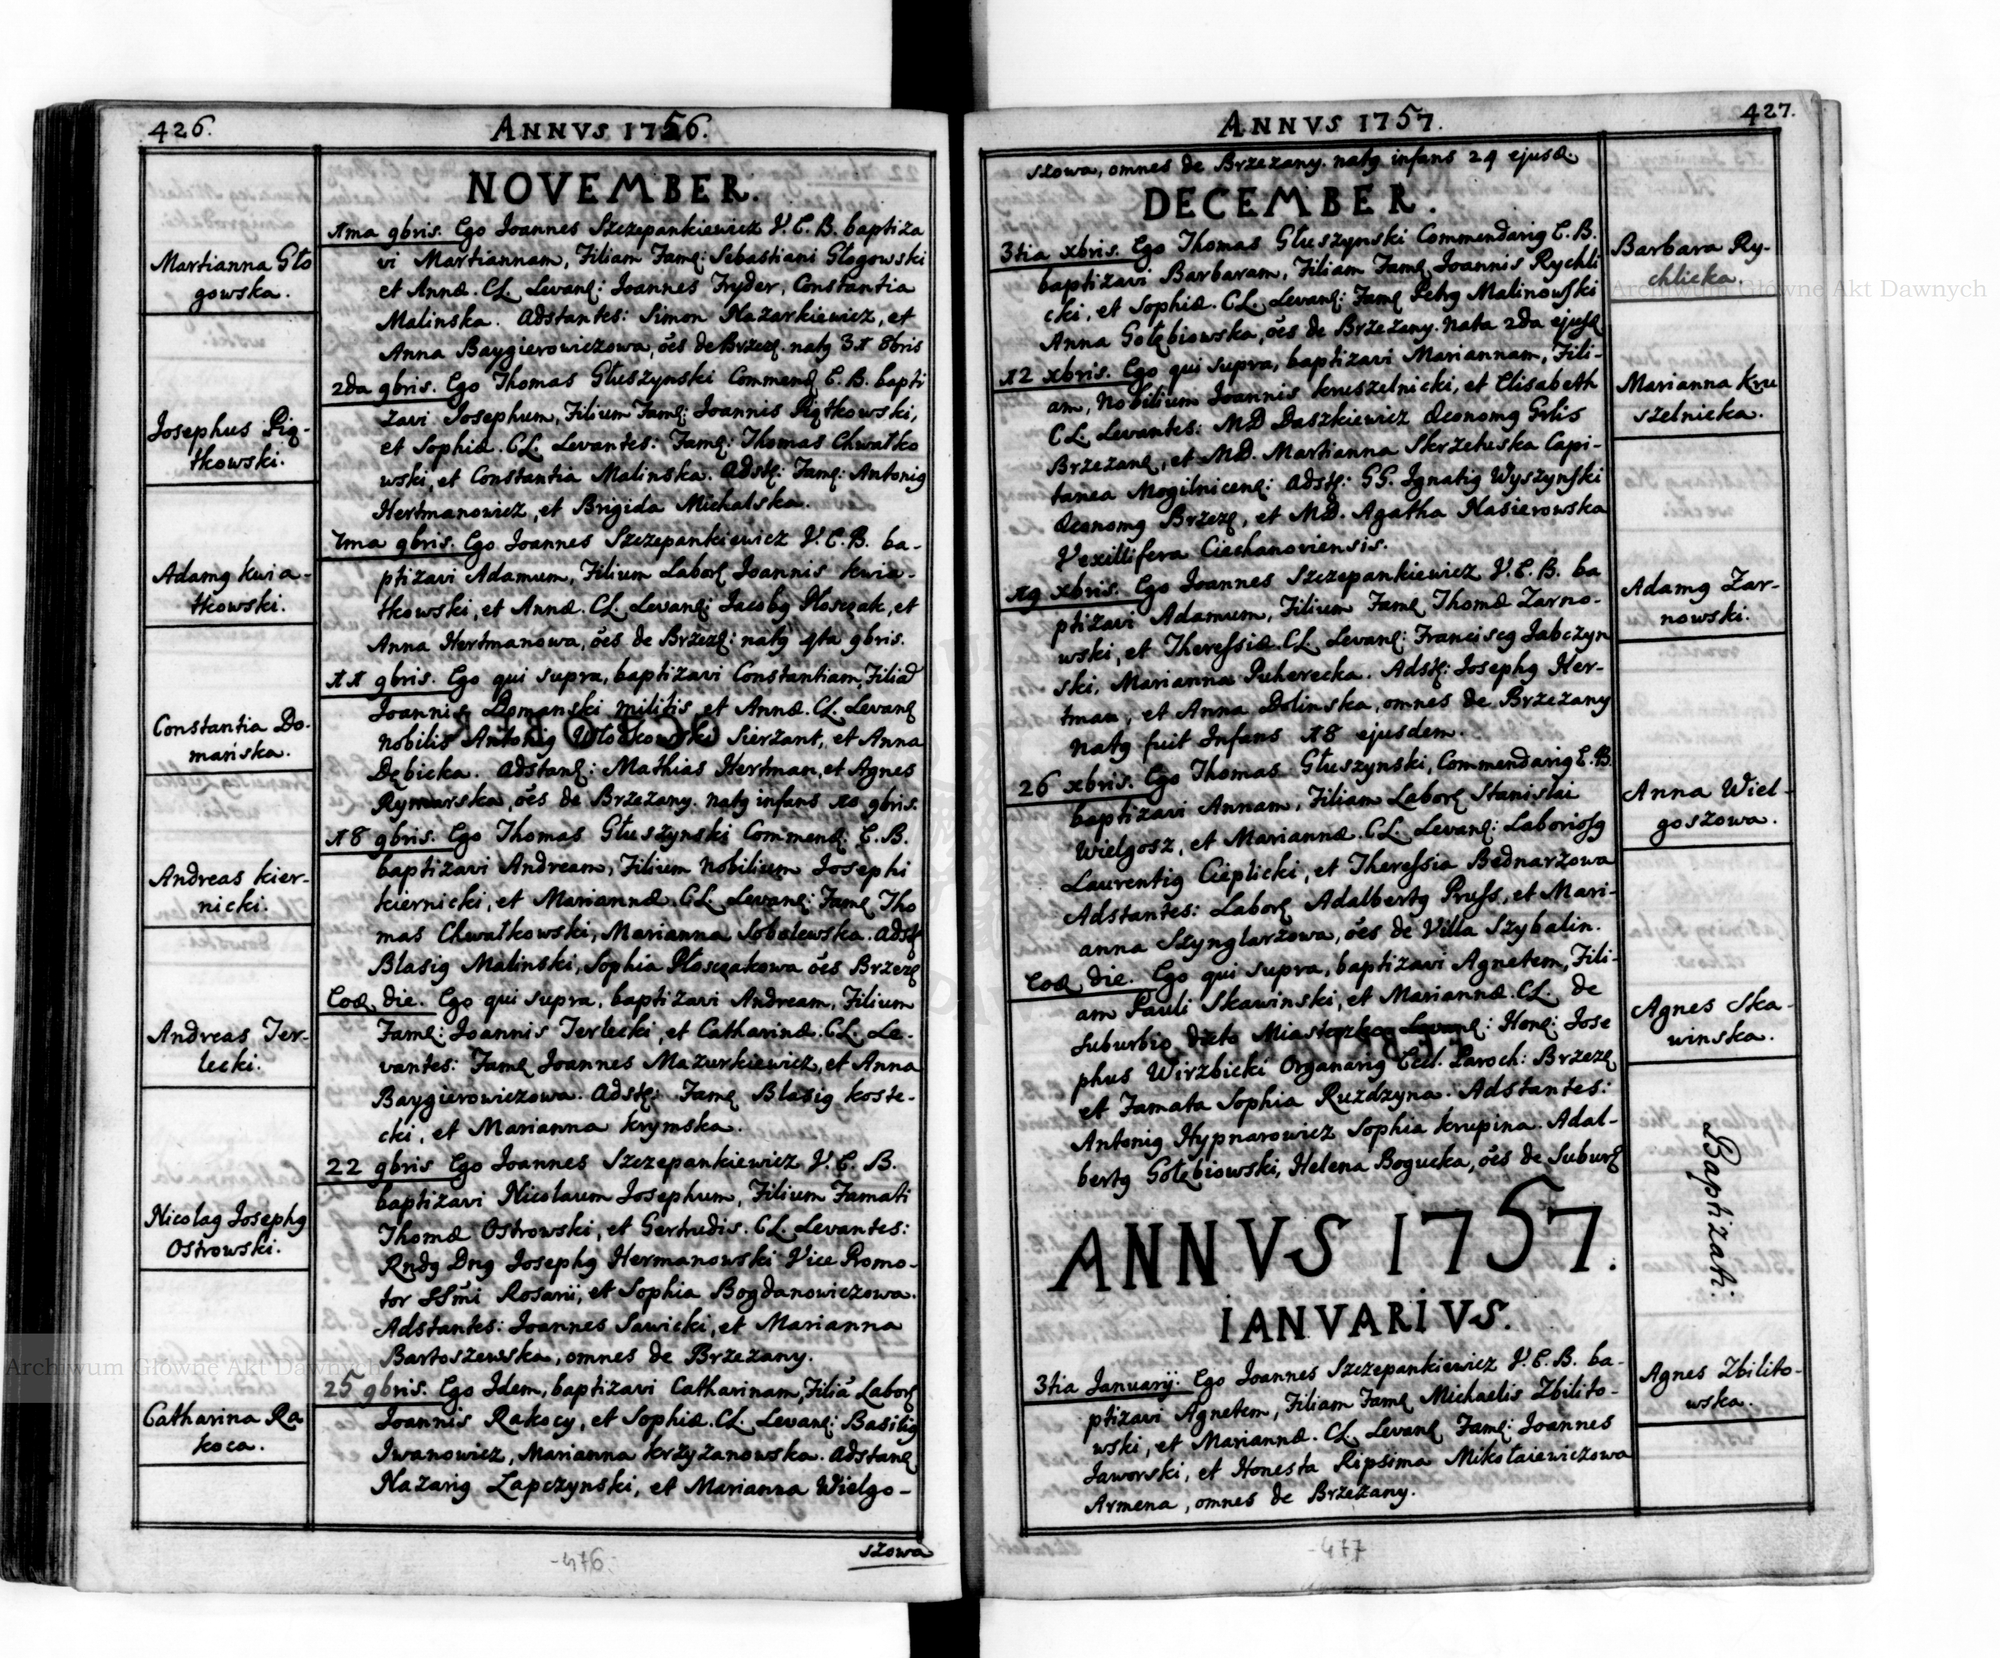 426.
ANNVS 1756.
NOVEMBER.
Martianna Gło
gowska.
1ma 9bris. Ego Joannes Szczepankiewicz V. E. B. baptiza
vi Martiannam, Filiam Famę: Sebastiani Głogowski
et Annæ. CL. Levanę: Joannes Fryder, Constantia
Malinska. Adstantes: Simon Nazarkiewicz, et
Anna Baygierowiczowa, oēs de Brzezę. natę 31 8bris
Josephus Pią-
tkowski.
2da 9bris. Ego Thomas Głuszynski Commendę E. B. bapti
zavi Josephum, Filium Famę: Joannis Piątkowski,
et Sophiæ. CL. Levantes: Famę: Thomas Chwałko
wski, et Constantia Malinska. Adstę: Famę: Antonię
Hertmanowicz, et Brigida Michalska.
Adamę kwia-
tkowski.
7ma 9bris. Ego Joannes Szczepankiewicz V. E. B. ba-
ptizavi Adamum, Filium Laborę Joannis kwia-
tkowski, et Annæ. CL. Levanę: Jacobę Płosczak, et
Anna Hertmanowa, oēs de Brzezę: natę 4ta 9bris.
Constantia Do-
mańska.
11 9bris. Ego qui supra, baptizavi Constantiam, Filiā
Joannis Domanski militis et Annæ. CL. Levanę
nobilis Antonię Włodkowski Sierżant, et Anna
Dębicka. Adstanę: Mathias Hertman, et Agnes
Rymarska, oēs de Brzezany. natę infans 10 9bris.
Andreas kier-
nicki.
18 9bris. Ego Thomas Głuszynski Commenę: E. B.
baptizavi Andream, Filium nobilium Josephi
kiernicki, et Mariannæ. CL. Levanę: Famę Tho
mas Chwałkowski, Marianna Sobolewska. Adstę
Blasię Malinski, Sophia Płosczakowa oēs Brzezę
Andreas Ter-
lecki.
Eodę die. Ego qui supra, baptizavi Andream, Filium
Famę: Joannis Terlecki, et Catharinæ. CL. Le-
vantes: Famę Joannes Mazurkiewicz, et Anna
Baygierowiczowa. Adstę: Famę Blasię koste-
cki, et Marianna krymska.
Nicolaę Josephę
Ostrowski.
22 9bris Ego Joannes Szczepankiewicz V. E. B.
baptizavi Nicolaum Josephum, Filium Famati
Thomæ Ostrowski, et Gertrudis. CL. Levantes:
Rndę Dnę Josephę Hermanowski Vice Promo-
tor SSmi Rosarii, et Sophia Bogdanowiczowa.
Adstantes: Joannes Sawicki, et Marianna
Bartoszewska, omnes de Brzezany.
Catharina Ra
koca.
25 9bris. Ego Idem, baptizavi Catharinam, Filiā Laborę
Joannis Rakocy, et Sophiæ. CL. Levanę: Basilię
Iwanowicz, Marianna krzyżanowska. Adstanę
Nazarię Łapczynski, et Marianna Wielgo-
szowa
-476-
427.
ANNVS 1757.
szowa, omnes de Brzezany. natę infans 24 ejusd.
DECEMBER.
Barbara Ry-
chlicka.
3tia xbris. Ego Thomas Głuszynski Commendarię E. B.
baptizavi Barbaram, Filiam Famę Joannis Rychli
cki, et Sophiæ. CL. Levanę: Famę Petrę Malinowski
Anna Gołębiowska, oēs de Brzezany. nata 2da ejusd
Marianna kru
szelnicka.
12 xbris. Ego qui supra, baptizavi Mariannam, Fili-
am, Nobilium Joannis kruszelnicki, et Elisabeth
CL. Levantes: MD Daszkiewicz Œconomę Grlis
Brzezanę, et MD. Martianna Skrzetuska Capi-
tanea Mogilnicenę: Adstę: GG. Ignatię Wyszynski
Œconomę Brzezę, et MD. Agatha Nasierowska
Vexillifera Ciechanoviensis.
Adamę Żar-
nowski.
19 xbris. Ego Joannes Szczepankiewicz V. E. B. ba
ptizavi Adamum, Filium Famę Thomæ Żarno-
wski, et Theressiæ. CL. Levanę: Franciscę Jabczyn
ski, Marianna Puherecka. Adstę: Josephę Her-
tman, et Anna Dolinska, omnes de Brzezany
natę fuit Infans 18 ejusdem.
Anna Wiel-
goszowa.
26 xbris. Ego Thomas Głuszynski, Commendarię E. B.
baptizavi Annam, Filiam Laborę Stanislai
Wielgosz, et Mariannæ. CL. Levanę: Laboriosę
Laurentię Cieplicki, et Theressia Bednarzowa
Adstantes: Laborę Adalbertę Pruss, et Mari-
anna Szynglarzowa, oēs de Villa Szybalin.
Agnes Ska-
winska.
Eodę die. Ego qui supra, baptizavi Agnetem, Fili-
am Pauli Skawinski, et Mariannæ. CL. de
suburbio dicto Miasteczko Levanę: Honę: Jose
phus Wirzbicki Organarię Eccl. Paroch: Brzezę
et Famata Sophia Ruzdzyna. Adstantes:
Antonię Hypnarowicz Sophia krupina. Adal-
bertę Gołębiowski, Helena Bogucka, oēs de Suburę
ANNVS 1757.
Baptizati.
IANVARIVS.
Agnes Zbilito-
wska.
3tia Januarij: Ego Joannes Szczepankiewicz V. E. B. ba-
ptizavi Agnetem, Filiam Famę Michaelis Zbilito-
wski, et Mariannæ. CL. Levanę Famę: Joannes
Jaworski, et Honesta Ripsima Mikołaiewiczowa
Armena, omnes de Brzezany.
-477
Archiwum Główne Akt Dawnych
Archiwum Główne Akt Dawnych